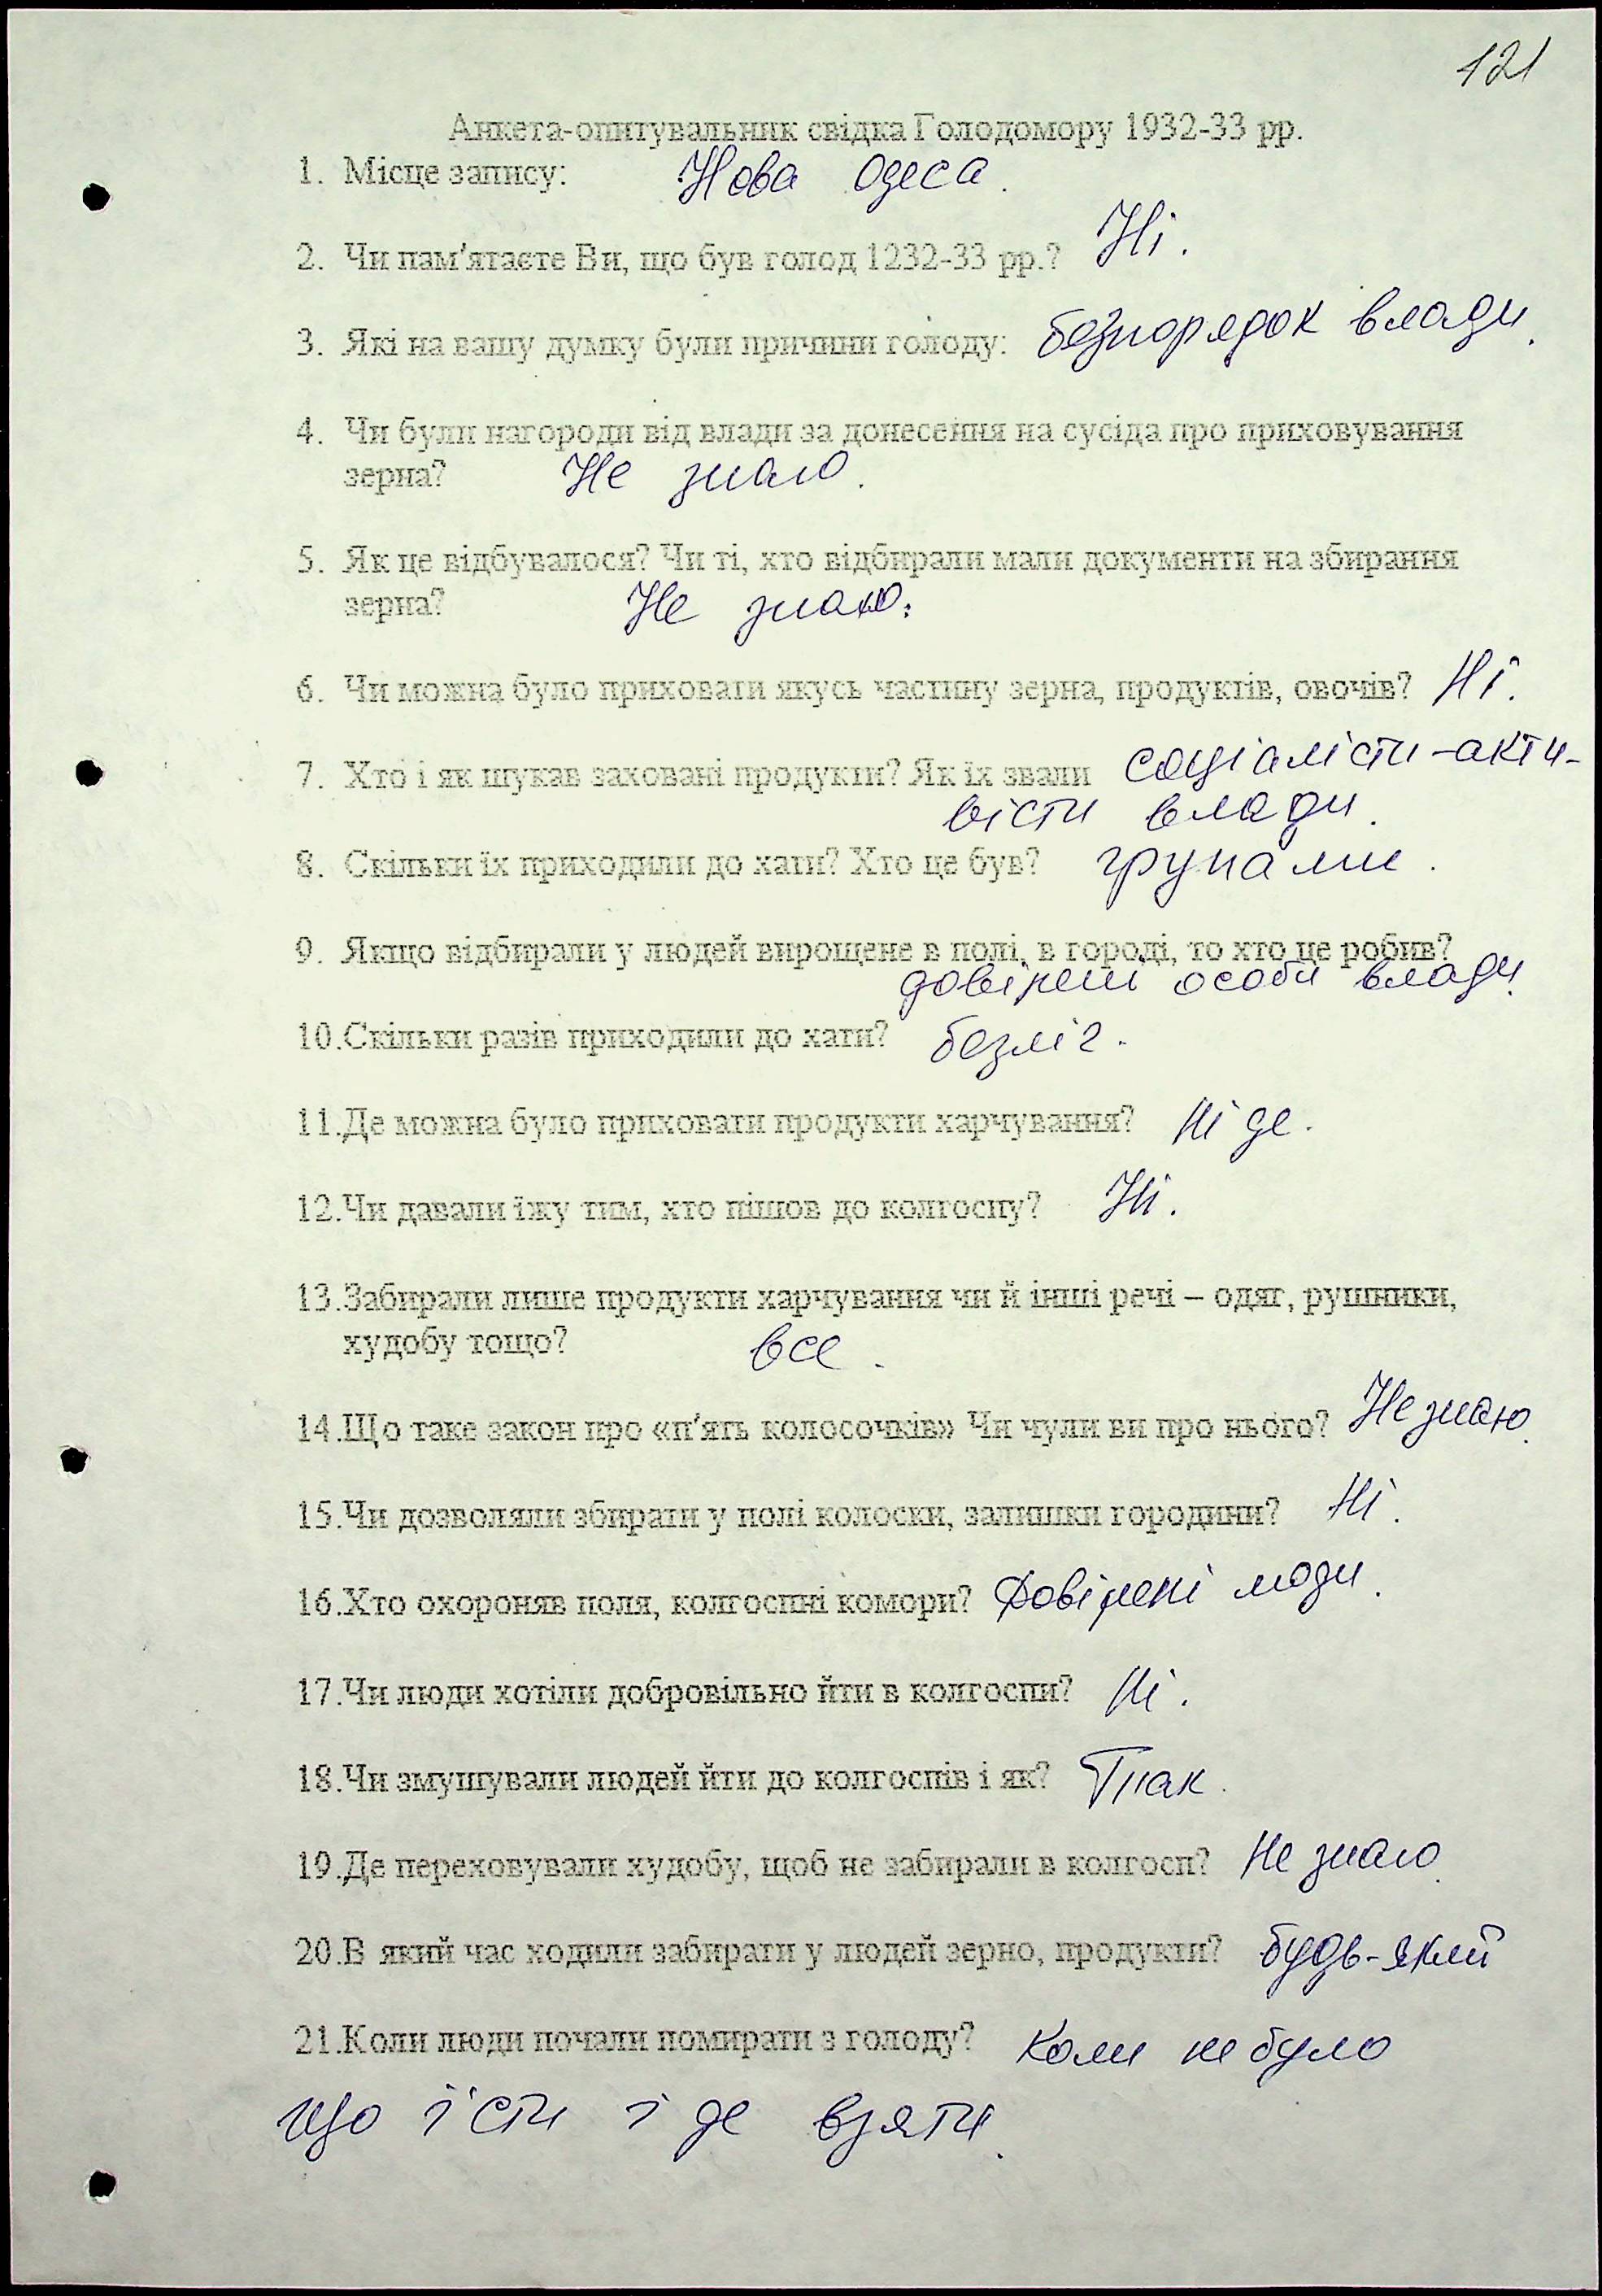 121
Анкета-опитувальник свідка Голодомору 1932-33 рр.
1. Місце запису: Нова Одеса.
2. Чи пам'ятаєте Ви, що був голод 1232-33 рр.? Ні.
3. Які на вашу думку були причини голоду: безпорядок влади.
4. Чи були нагороди від влади за донесення на сусіда про приховування
зерна? Не знаю.
5. Як це відбувалося? Чи ті, хто відбирали мали документи на збирання
зерна? Не знаю.
6. Чи можна було приховати якусь частину зерна, продуктів, овочів? Ні.
7. Хто і як шукав заховані продукти? Як їх звали соціалісти-акти-
вісти влади.
8. Скільки їх приходили до хати? Хто це був? групами.
9. Якщо відбирали у людей вирощене в полі, в городі, то хто це робив?
довірені особи влади.
10.Скільки разів приходили до хати? безліч.
11.Де можна було приховати продукти харчування? Ні де.
12.Чи давали їжу тим, хто пішов до колгоспу? Ні.
13.Забирали лише продукти харчування чи й інші речі – одяг, рушники,
худобу тощо? все.
14.Що таке закон про «п'ять колосочків» Чи чули ви про нього? Не знаю.
15.Чи дозволяли збирати у полі колоски, залишки городини? Ні.
16.Хто охороняв поля, колгоспні комори? Довірені люди.
17.Чи люди хотіли добровільно йти в колгоспи? Ні.
18.Чи змушували людей йти до колгоспів і як? Так.
19.Де переховували худобу, щоб не забирали в колгосп? Не знаю.
20.В який час ходили забирати у людей зерно, продукти? будь-який
21.Коли люди почали помирати з голоду? Коли не було
що їсти і де взяти.